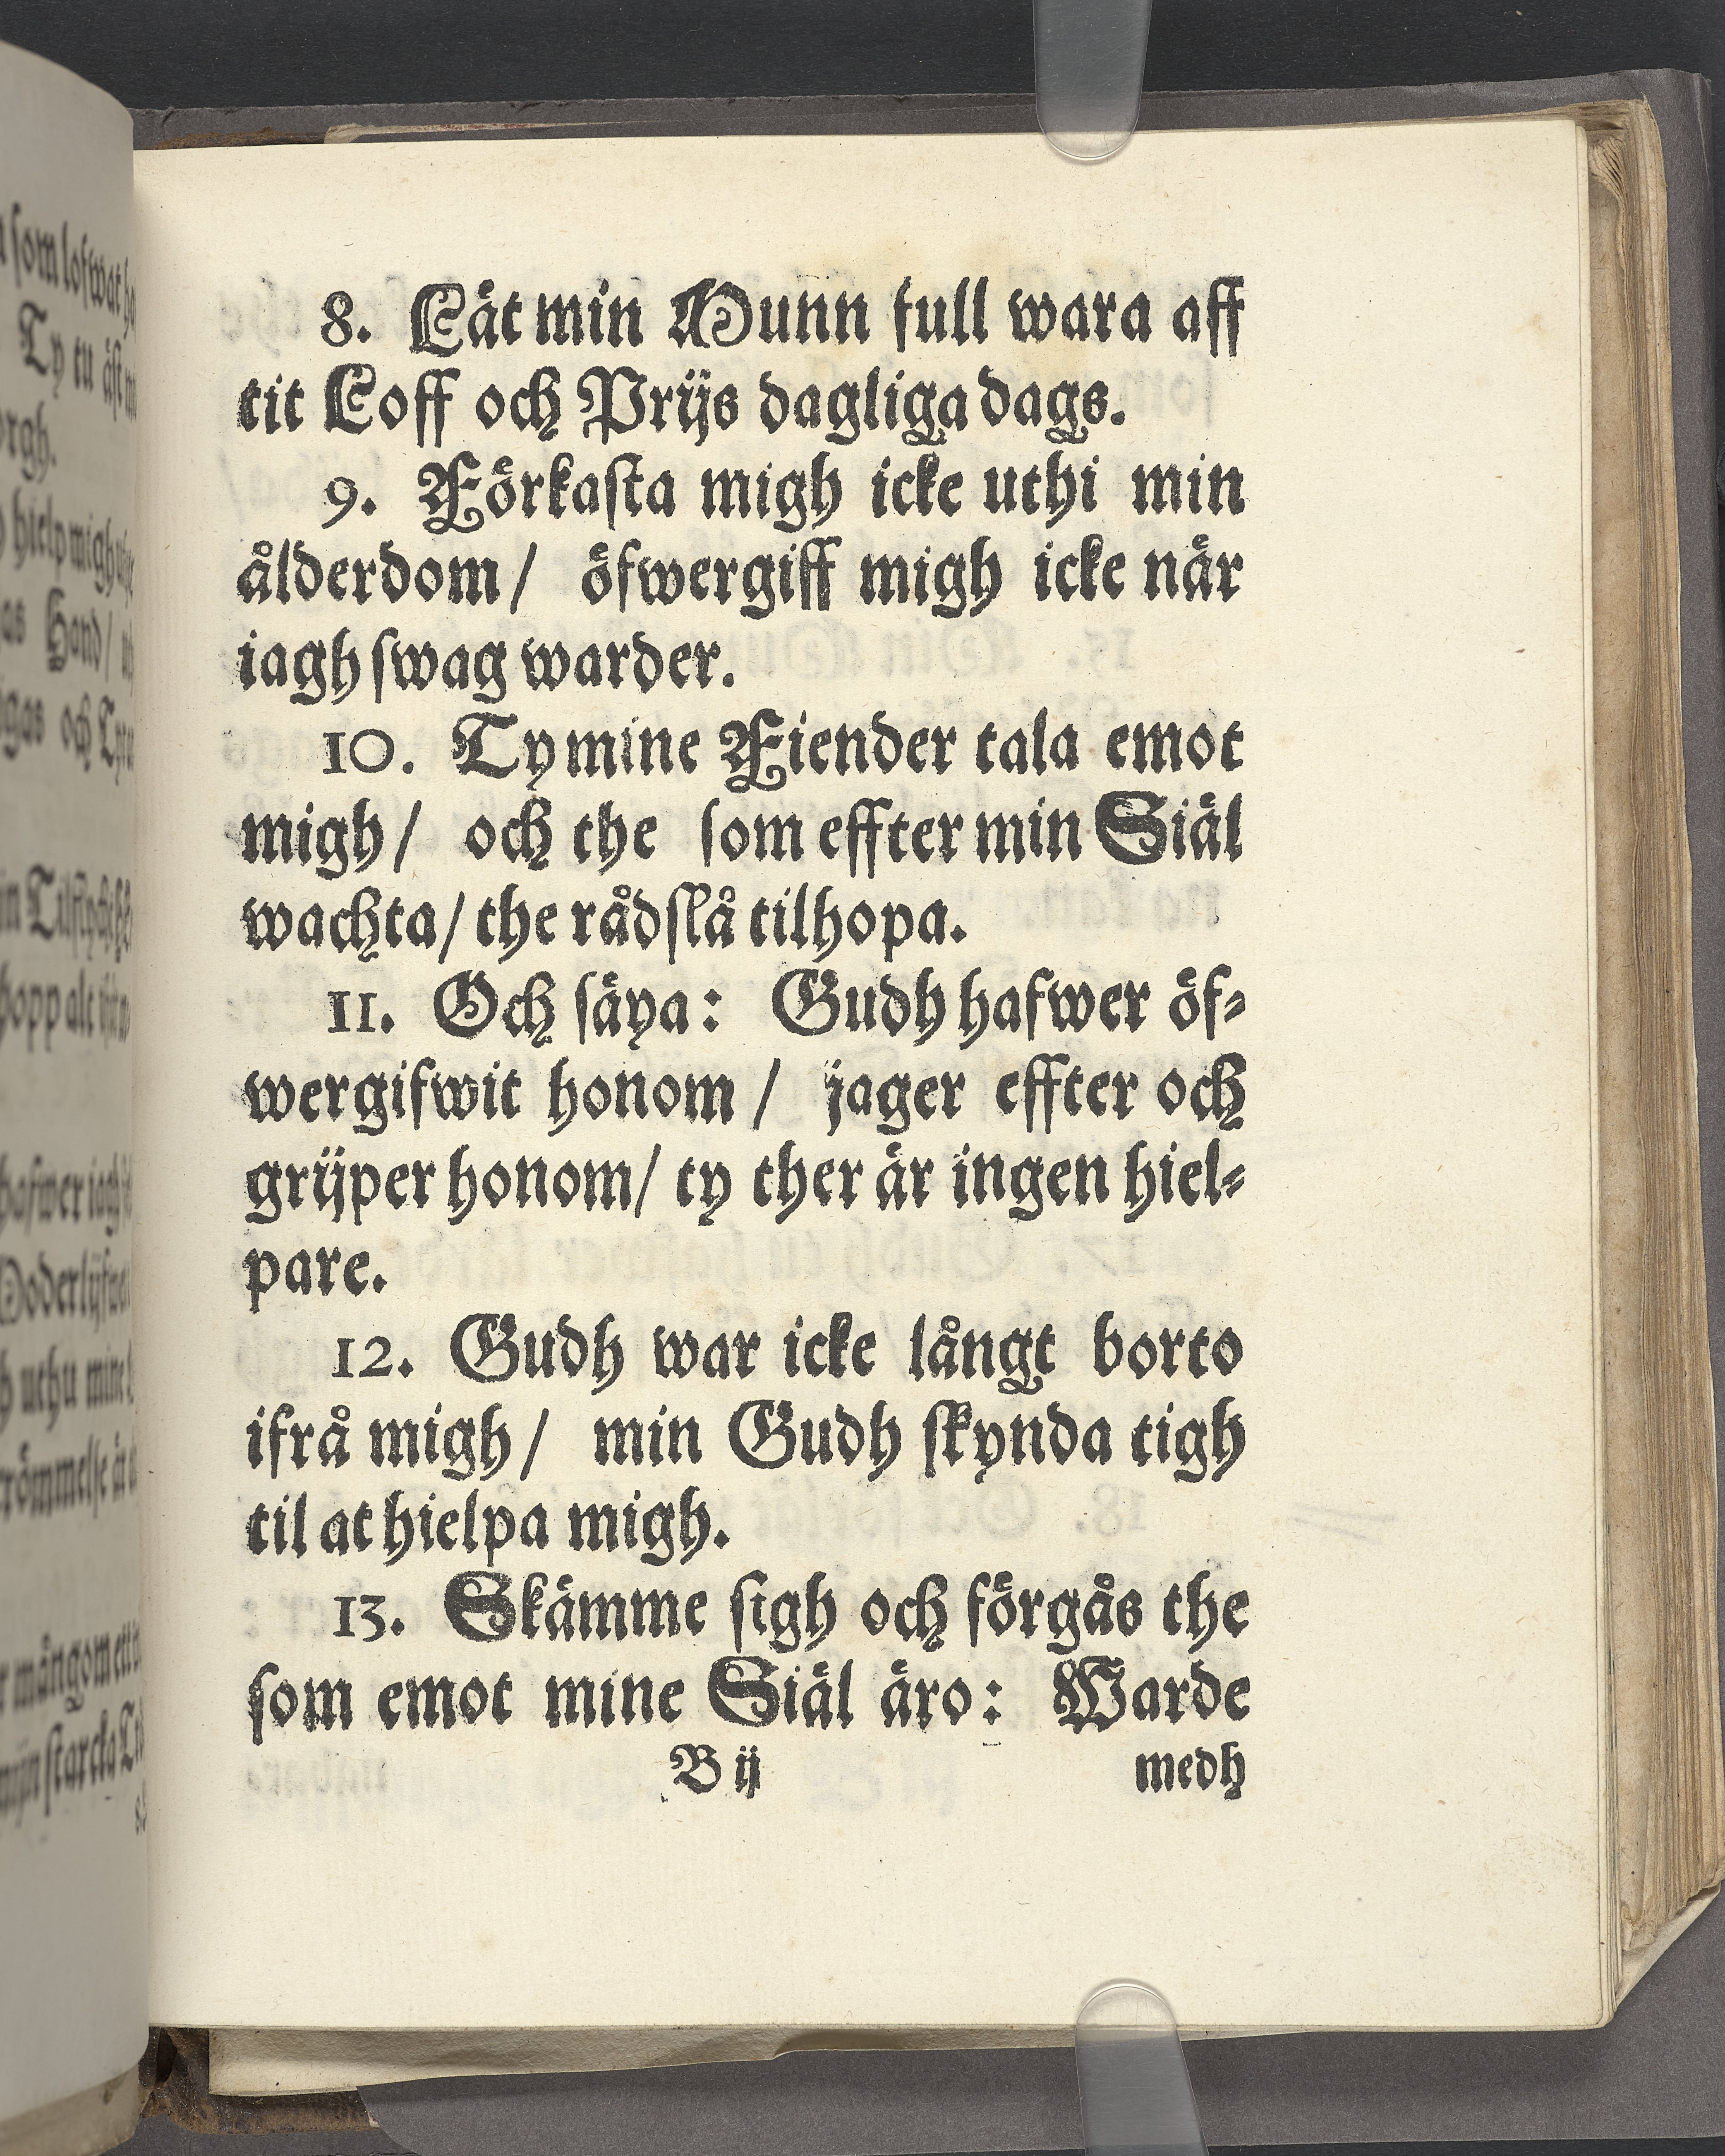 8. Låt min Munn full wara aff
tit Loff och Prijs dagliga dags.
9. Förkasta migh icke uthi min
ålderdom/ öfwergiff migh icke når
iagh swag warder.
10. Ty mine Fiender tala emot
migh/ och the som effter min Siäl
wachta/ the rådslå tilhopa.
11. Och säya: Gudh hafwer öf-
wergifwit honom/ jager effter och
grijper honom/ ty ther är ingen hiel-
pare.
12. Gudh war icke långt borto
ifrå migh/ min Gudh skynda tigh
til at hielpa migh.
13. Skämme sigh och förgås the
som emot mine Siäl äro: Warde
B ij medh